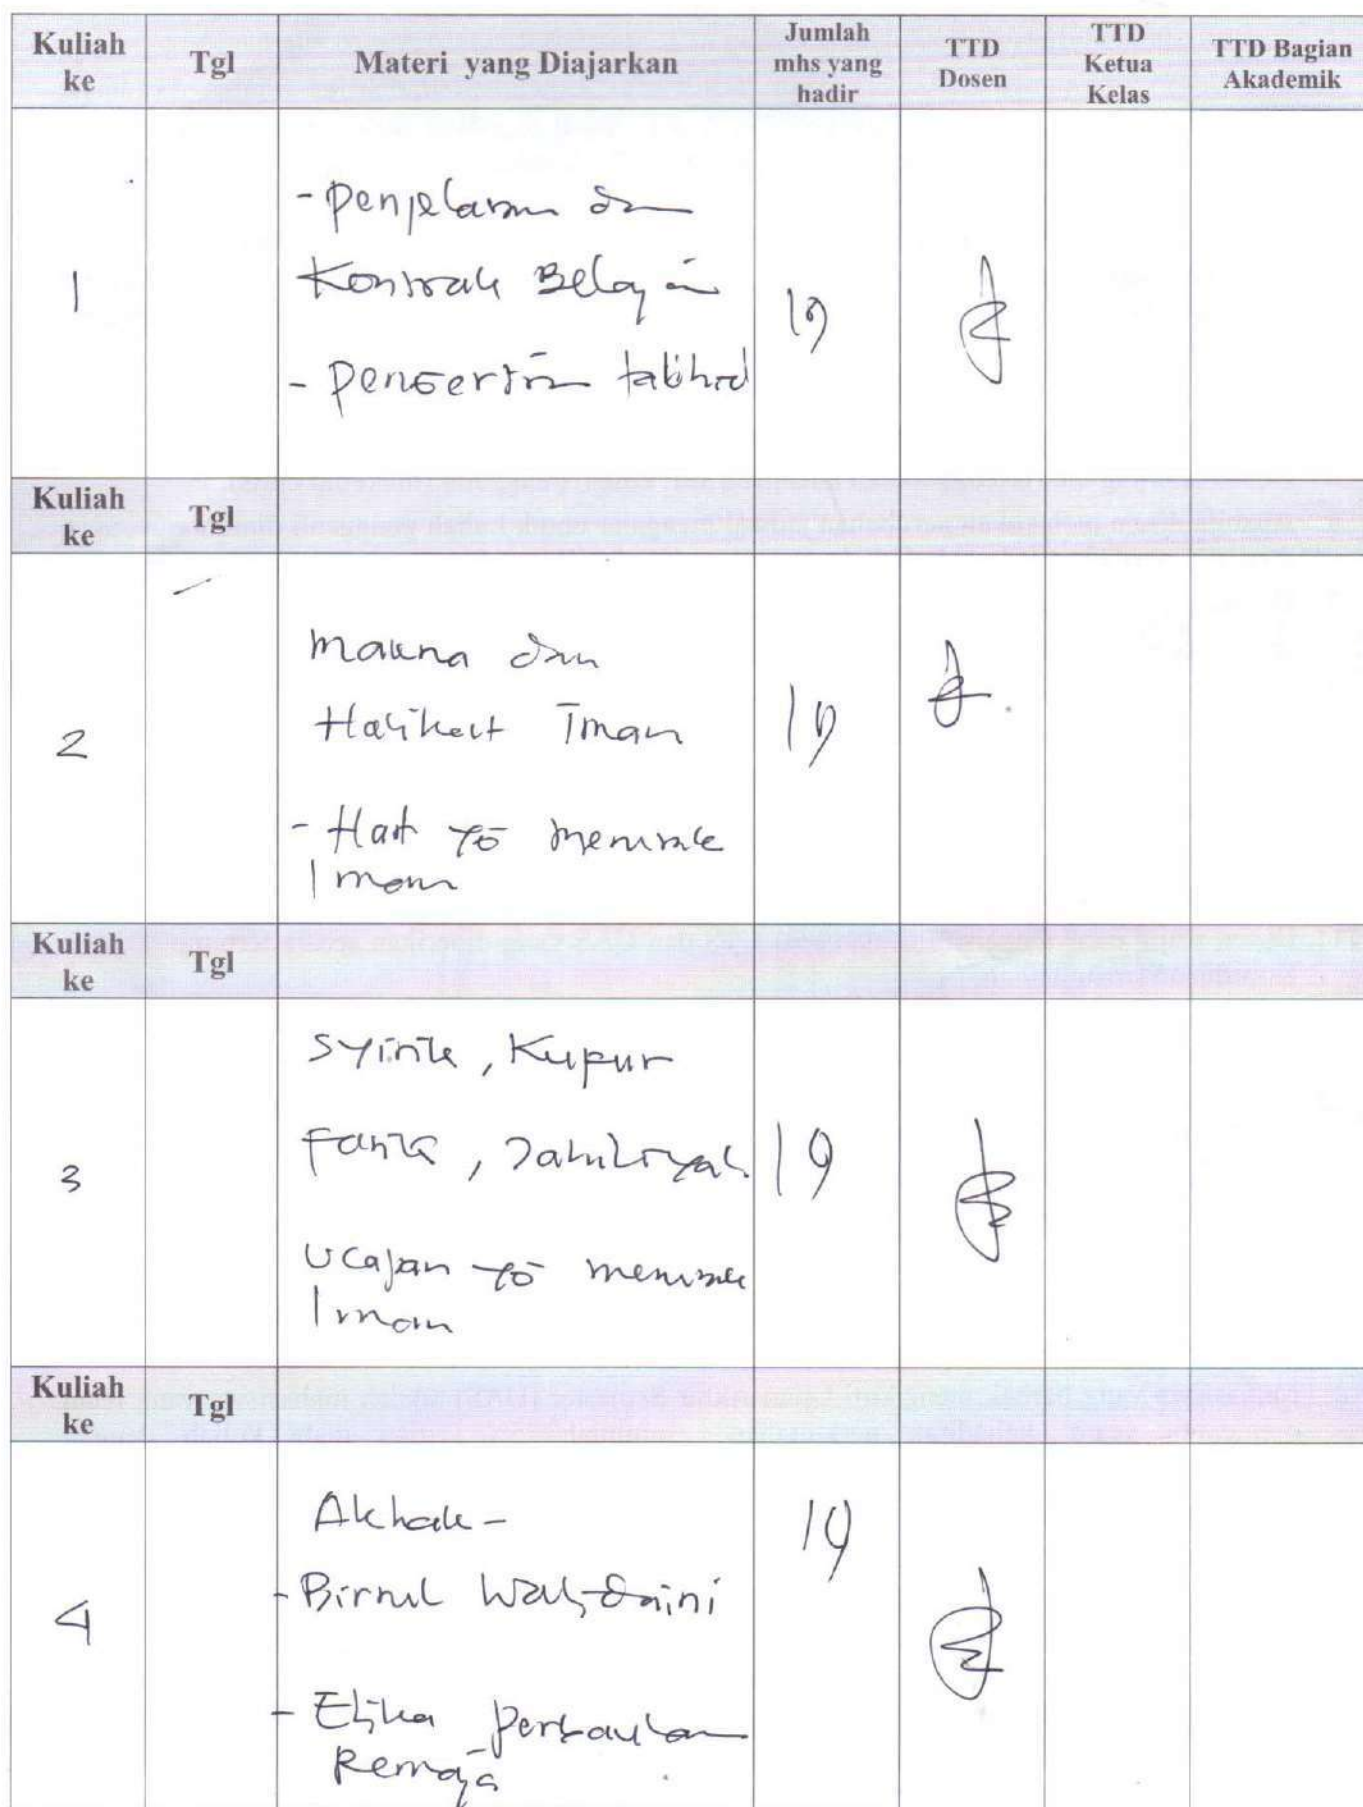 Kuliah ke
Tgl
Materi yang Diajarkan
Jumlah mhs yang hadir
TTD Dosen
TTD Ketua Kelas
TTD Bagian Akademik
1
- Penjelasan dan
Kontrak Belajar
- Pengertian tauhid
19
Kuliah ke
Tgl
2
Makna dan
Hakikat Iman
- Hal yg merusak
Iman
19
Kuliah ke
Tgl
3
Syirik, Kupur
Fasik, Jahiliyah
Ucapan yg merusak
Iman
19
Kuliah ke
Tgl
4
Akhlak -
- Birrul Walidaini
- Etika Pergaulan
Remaja
19